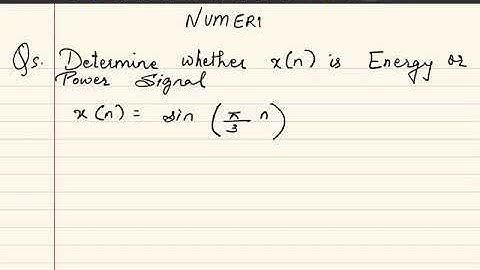 NUMERI
Qs. Determine whether x(n) is Energy or
Power Signal
x(n) = sin (π/3 n)